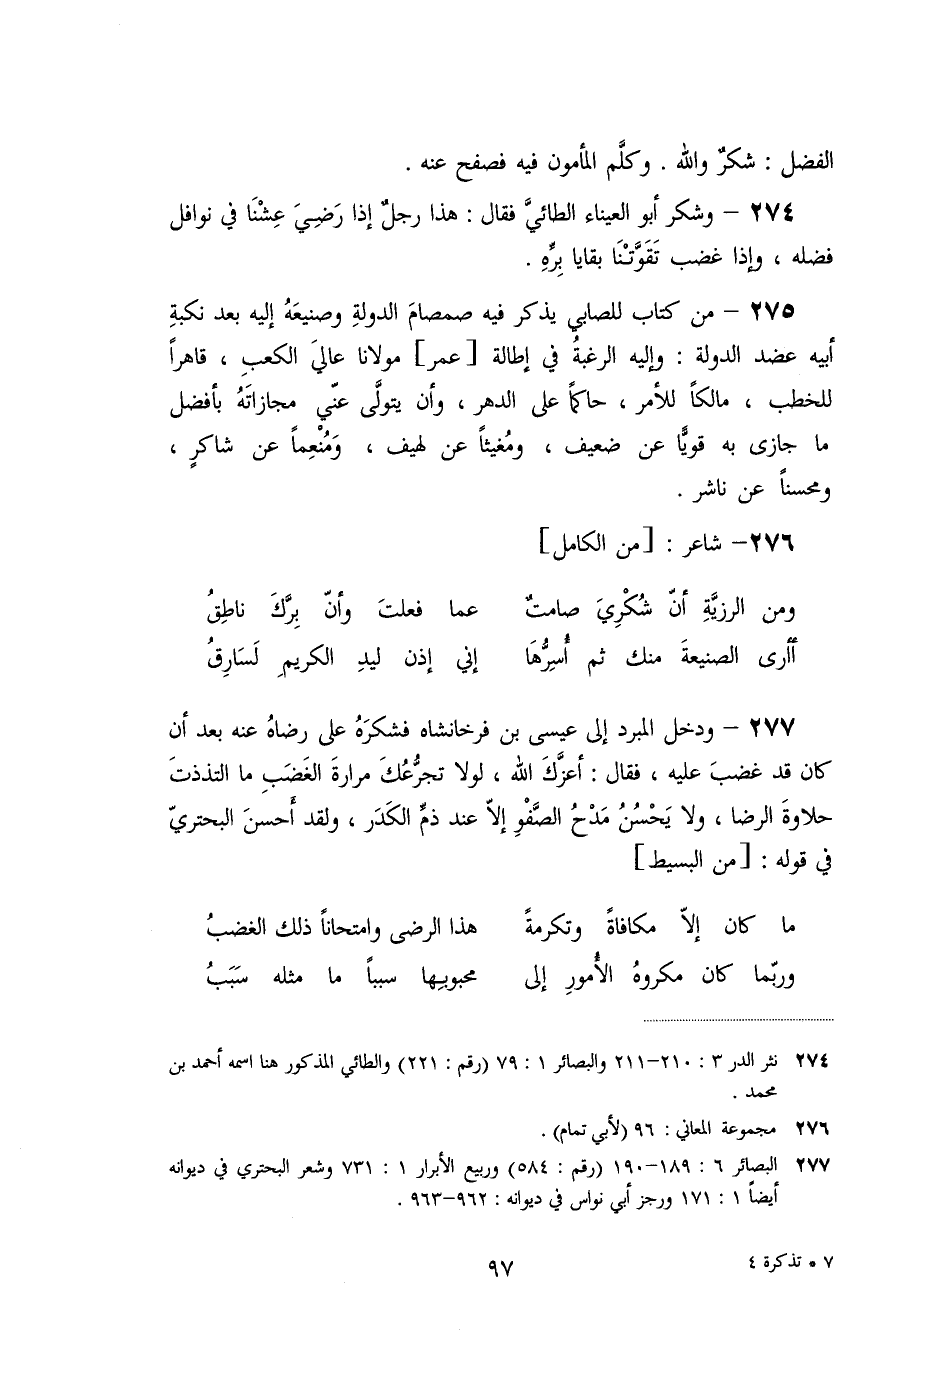 الفضل : شكرٌ والله . وكلَّم المأمون فيه فصفح عنه .
٢٧٤ – وشكر أبو العيناء الطائيَّ فقال : هذا رجلٌ إذا رَضِيَ عِشْنَا في نوافل
فضله ، وإذا غضب تَقَوَّتْنَا بقايا بِرِّهِ .
٢٧٥ – من كتاب للصابي يذكر فيه صمصامَ الدولةِ وصنيعَهُ إليه بعد نكبةِ
أبيه عضد الدولة : وإليه الرغبةُ في إطالة [عمر] مولانا عاليَ الكعبِ ، قاهراً
للخطب ، مالكاً للأمر ، حاكماً على الدهر ، وأن يتولَّى عنّي مجازاتَهُ بأفضل
ما جازى به قويًّا عن ضعيف ، ومُغيثاً عن لهيف ، وَمُنْعِماً عن شاكرٍ ،
ومحسناً عن ناشر .
٢٧٦– شاعر : [من الكامل]
ومن الرزيَّةِ أنّ شُكْرِيَ صامتٌ عما فعلتَ وأنّ بِرَّكَ ناطِقُ
أأرى الصنيعةَ منك ثم أُسِرُّهَا إني إذن ليدِ الكريمِ لَسَارِقُ
٢٧٧ – ودخل المبرد إلى عيسى بن فرخانشاه فشكرَهُ على رضاهُ عنه بعد أن
كان قد غضبَ عليه ، فقال : أعزَّكَ الله ، لولا تجرُّعُكَ مرارةَ الغَضَبِ ما التذذتَ
حلاوةَ الرضا ، ولا يَحْسُنُ مَدْحُ الصَّفْوِ إلاّ عند ذمِّ الكَدَر ، ولقد أَحسنَ البحتريّ
في قوله : [من البسيط]
ما كان إلاّ مكافاةً وتكرمةً هذا الرضى وامتحاناً ذلك الغضبُ
وربّما كان مكروهُ الأُمورِ إلى محبوبها سبباً ما مثله سَبَبُ
٢٧٤ نثر الدر ٣ : ٢١٠–٢١١ والبصائر ١ : ٧٩ (رقم : ٢٢١) والطائي المذكور هنا اسمه أحمد بن
محمد .
٢٧٦ مجموعة المعاني : ٩٦ (لأبي تمام) .
٢٧٧ البصائر ٦ : ١٨٩–١٩٠ (رقم : ٥٨٤) وربيع الأبرار ١ : ٧٣١ وشعر البحتري في ديوانه
أيضاً ١ : ١٧١ ورجز أبي نواس في ديوانه : ٩٦٢–٩٦٣ .
٧ * تذكرة ٤
٩٧